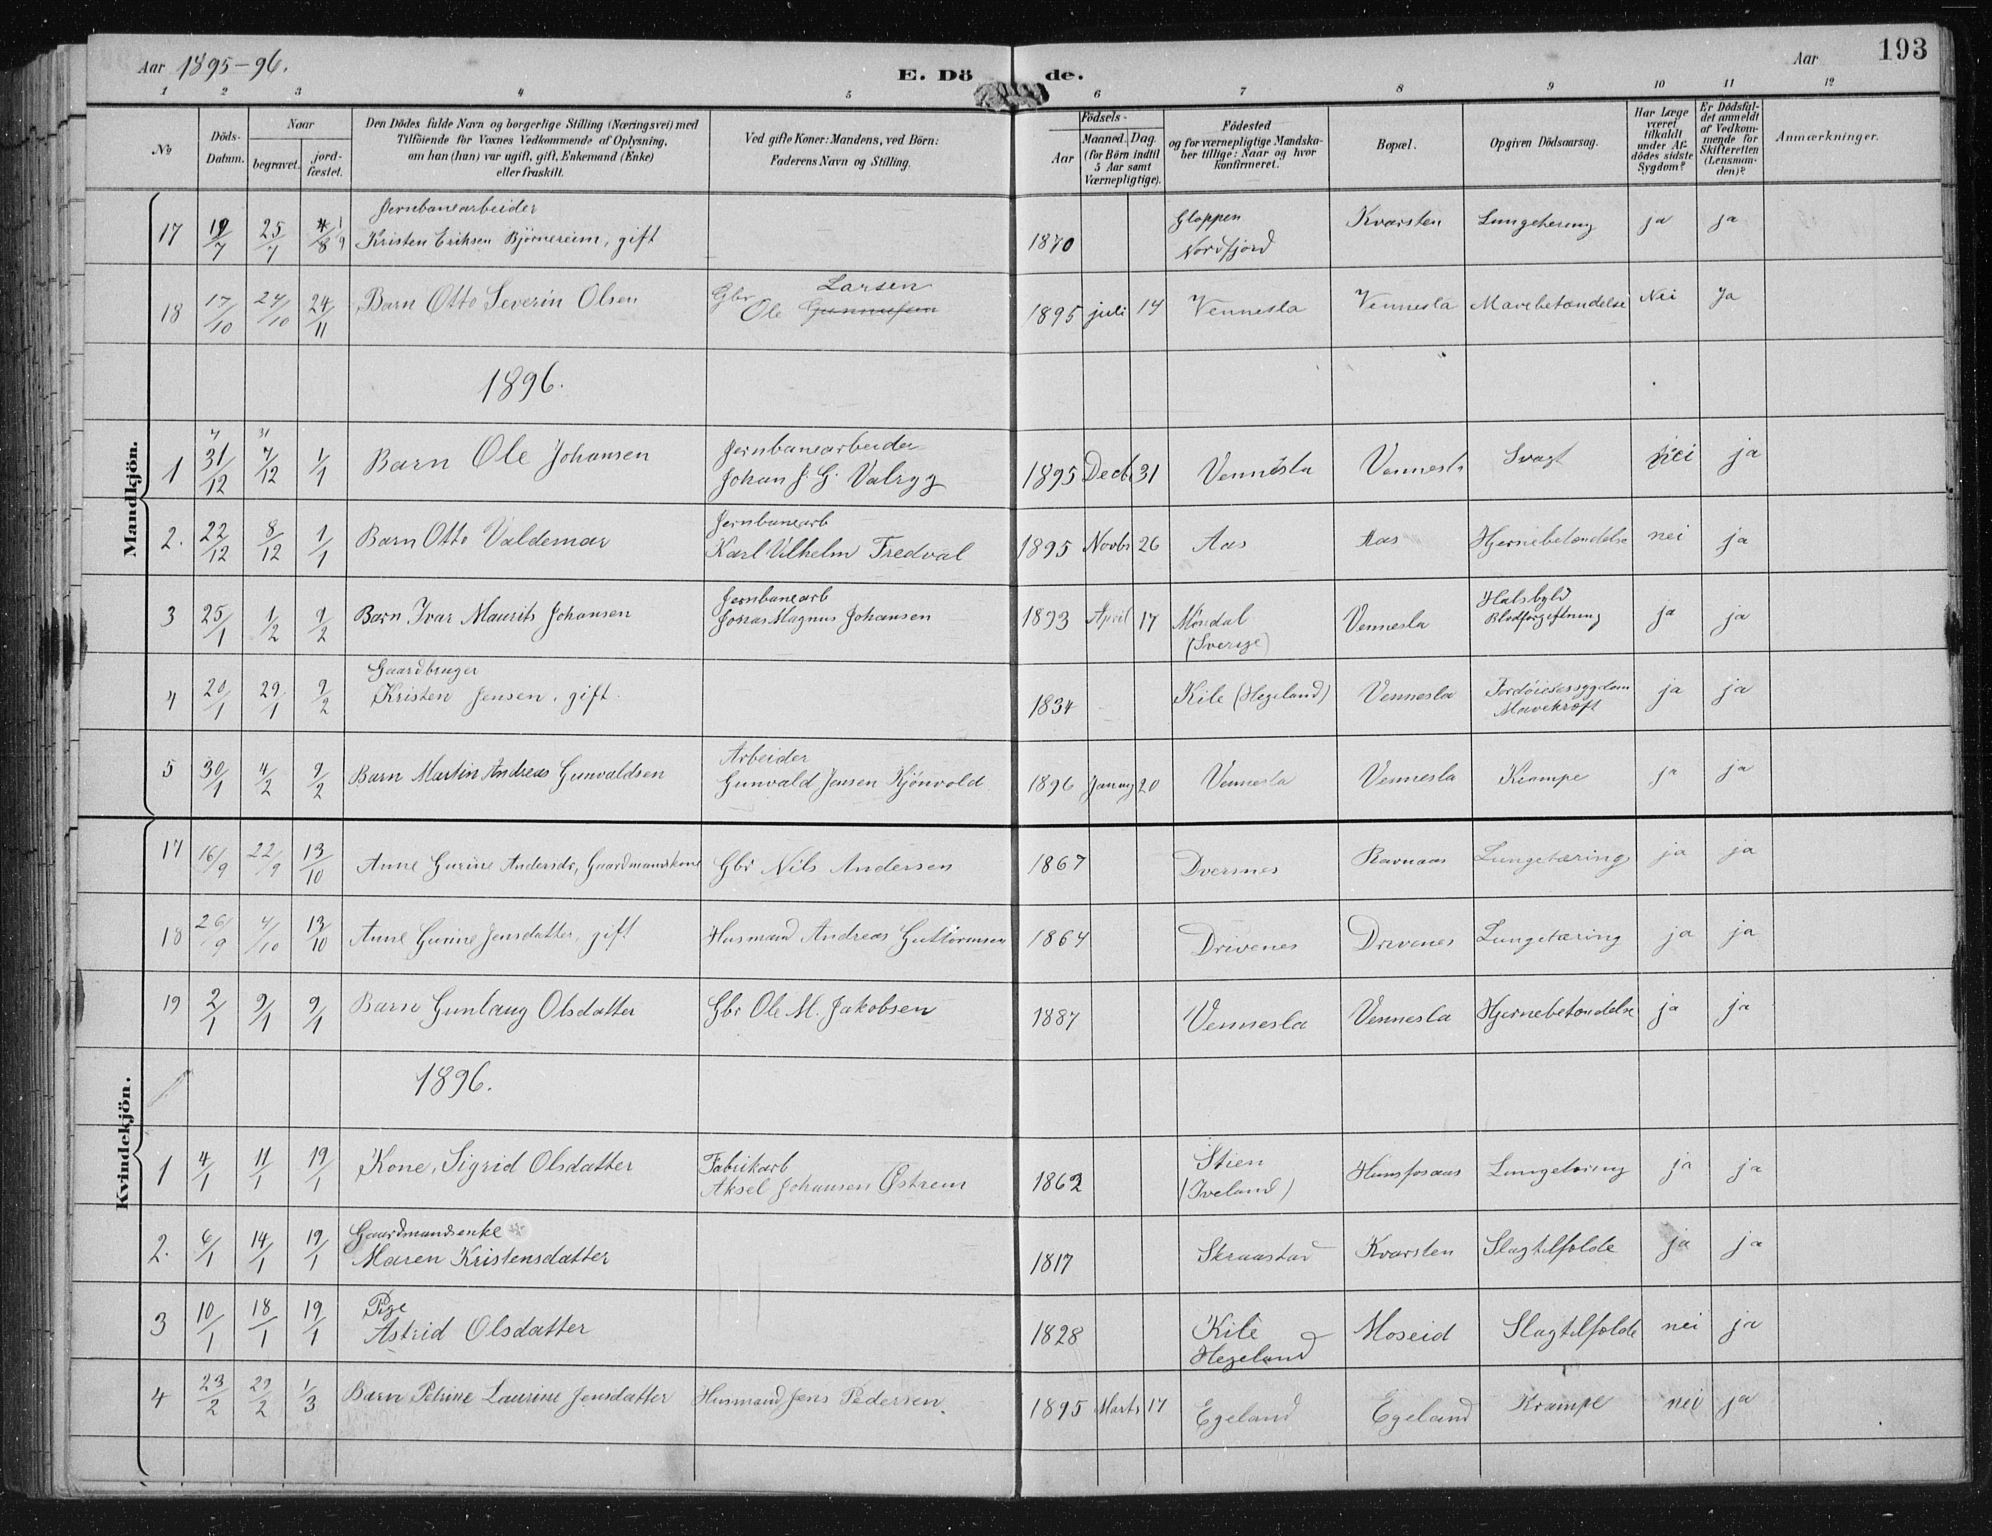 Aar 1895-96. E. Dö de. Aar 193
1 2 3 4 5 6 7 8 9 10 11 12
No
Döds-Datum.
Naar
begravet.
jord-fæstet.
Den Dödes fulde Navn og borgerlige Stilling (Næringsvei) med
Tilföiende for Voxnes Vedkommende af Oplysning,
om han (hun) var ugift, gift, Enkemand (Enke)
eller fraskilt.
Ved gifte Koner: Mandens, ved Börn:
Faderens Navn og Stilling.
Födsels-
Aar
Maaned. Dag.
(for Börn indtil
5 Aar samt
Værnepligtige).
Födested
og for værnepligtige Mandska-
ber tillige: Naar og hvor
konfirmeret.
Bopæl.
Opgiven Dödsaarsag.
Har Læge
været
tilkaldt
under Af-
dödes sidste
Sygdom?
Er Dödsfal-
det anmeldt
af Vedkom-
mende for
Skifteretten
(Lensman-
den)?
Anmærkninger.
Mandkjön.
Jernbanearbeider Gloppen
17 19/7 25/7 Kristen Eriksen Bjørnereim, gift 1870 Nordfjord Kvarsten ja ja
Larsen
18 17/10 27/10 24/11 Barn Otto Severin Olsen Gbr Ole Gunnufsen 1895 juli 14 Vennesla Vennesla Mavebetændelse Nei Ja
1896.
Jernbanearbeider
1 31/12 7/12 1/1 Barn Ole Johansen Johan J. G. 1895 Decb 31 Vennesla Vennesla Svagt nei ja
Jernbanearb
2. 22/12 8/12 1/1 Barn Otto Valdemar Karl Vilhelm Fredval 1895 Novbr 26 Aas Aas Hjernebetændelse nei ja
Jernbanearb Halsbyld
3 25/1 1/2 9/2 Barn Ivar Maurits Johansen Jonas Magnus Johansen 1893 April 17 Møndal Vennesla Blodforgiftning ja ja
(Sverige)
Gaardbruger
4 20/1 29/1 9/2 Kristen Jensen, gift. 1834 Kile (Hegeland) Vennesla Fordøielsessygdom ja ja
Mavekræft
Arbeider
5 30/1 4/2 9/2 Barn Martin Andreas Gunvaldsen Gunvald Jensen Kjønvold 1896 Januar 20 Vennesla Vennesla Krampe ja ja
Kvindekjön.
17 16/9 22/9 13/10 Anne Gurine Andersdr, Gaardmandskone Gbr Nils Andersen 1867 Dversnes Ravnaas Lungetæring ja ja
18 26/9 4/10 13/10 Anne Gurine Jensdatter, gift Husmand Andreas Guttormsen 1864 Drivenes Drivenes Lungetæring ja ja
19 2/1 9/1 9/1 Barn Gunlaug Olsdatter Gbr Ole M. Jakobsen 1887 Vennesla Vennesla Hjernebetændelse ja ja
1896.
1 4/1 11/1 19/1 Kone, Sigrid Olsdatter Fabrikarb 1862 Stien Hunsfosaas Lungetæring ja ja
Aksel Johansen Østrem (Iveland)
Gaardmandsenke
2. 6/1 14/1 19/1 Maren Kristensdatter 1817 Skraastad Kvarsten Slagtilfælde ja ja
Pige
3 10/1 18/1 19/1 Astrid Olsdatter 1828 Kile Moseid Slagtilfælde nei ja
Hegeland
4 23/2 29/2 1/3 Barn Petrine Laurine Jensdatter Husmand Jens Pedersen. 1895 Marts 17 Egeland Egeland Krampe nei ja